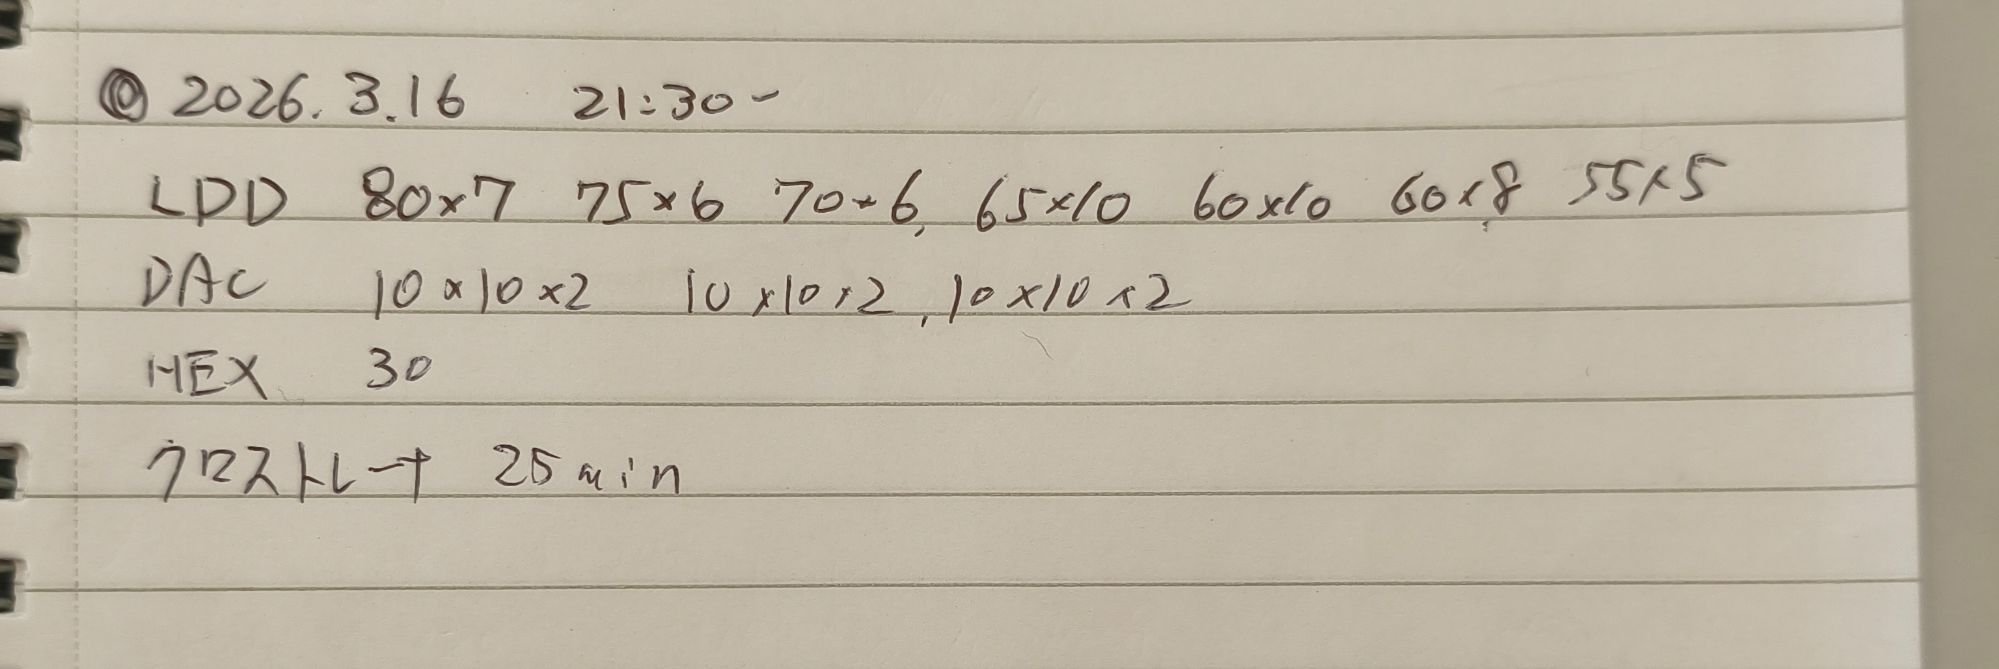 ◎ 2026.3.16 21:30~
LDD 80×7 75×6 70×6, 65×10 60×10 60×8 55×5
DAC 10×10×2 10×10×2, 10×10×2
HEX 30
クロストレーナ 25min